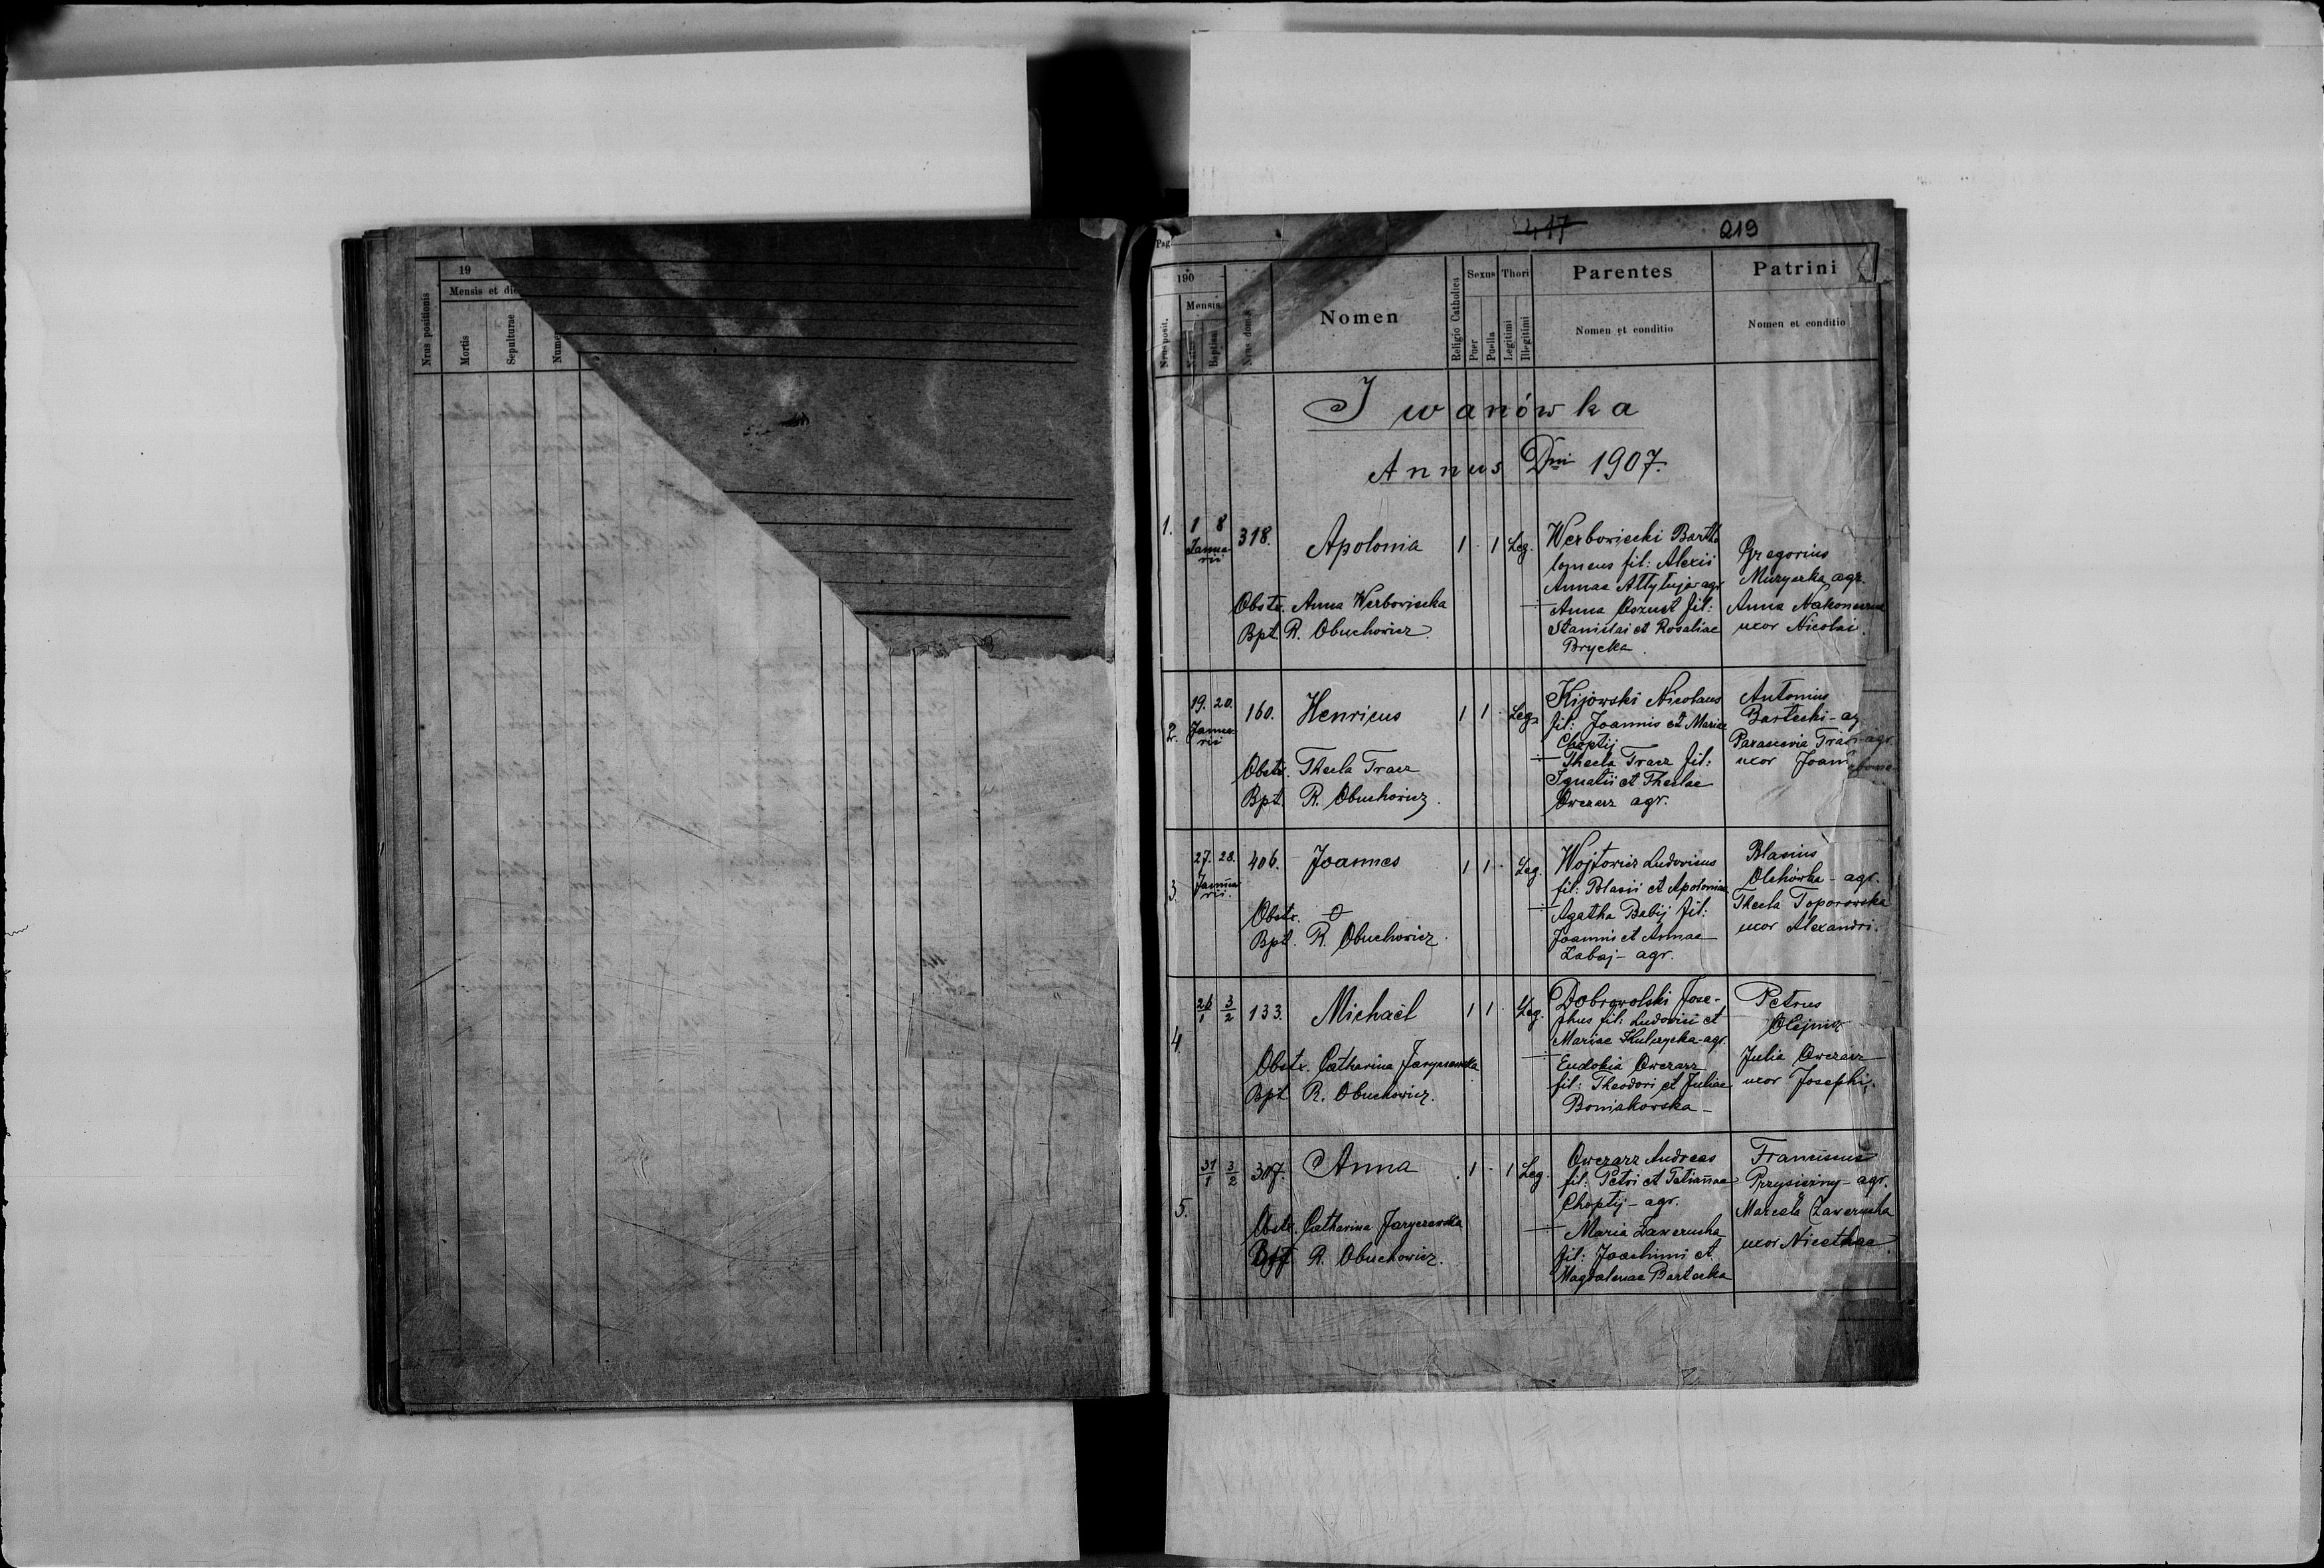 19
Mensis et die
Nrus positionis
Mortis
Sepulturae
Nume
Pag.
417
219
190
Mensis
Nrus posit.
Natus
Baptisati
Nrus domus
Nomen
Religio Catholica
Sexus
Puer
Puella
Thori
Legitimi
Illegitimi
Parentes
Nomen et conditio
Patrini
Nomen et conditio
Iwanówka
Annus Dni 1907.
1.
1 8
Janua-
rii
318.
Apolonia
1 · 1 Leg.
Obstr. Anna Werbowiecka
Bpt. R. Obuchowicz.
Werbowiecki Bartho
lomeus fil: Alexii
Annae agr.
Anna fil:
Stanislai et Rosaliae
Brycka.
Gregorius
Muzyczka agr.
Anna
uxor Nicolai.
2.
19. 20.
Janua-
rii
160.
Henricus
1 1 · Leg.
Obstr. Thecla Tracz
Bpt. R. Obuchowicz.
Kijowski Nicolaus
fil: Joannis et Mariae
Choptij
Thecla Tracz fil:
Ignatii et Theclae
Owczarz agr.
Antonius
Bartecki - ag
Parascevia Tracz agr.
uxor Joann
3.
27. 28.
Janua
rii.
406.
Joannes
1 1 · Leg.
Obstr. 0
Bpt. R. Obuchowicz.
Wojtowicz Ludovicus
fil: Blasii et Apoloniae
Agatha Babij fil:
Joannis et Annae
Zabaj - agr.
Blasius
Olchówka - agr.
Thecla Toporowska
uxor Alexandri.
4.
26/1 3/2
133.
Michaël
1 1 · Leg.
Obstr. Catharina Jaryczewska
Bpt R. Obuchowicz.
Dobrowolski Jose-
phus fil: Ludovici et
Mariae Kulczycka - agr.
Eudokia Owczarz
fil: Theodori et Juliae
Boniakowska -
Petrus
Olejnik
Julia Owczarz
uxor Josephi.
5.
31/1 3/2
307.
Anna
1 · 1 Leg.
Obstr. Catharina Jaryczewska
Bpt R. Obuchowicz.
Owczarz Andreas
fil: Petri et Tatiannae
Choptij - agr.
Maria Zawerucha
fil: Joachimi et
Magdalenae Bartecka
Franciscus
Przysiezny - agr.
Marcela Zawerucha
uxor Nicethae